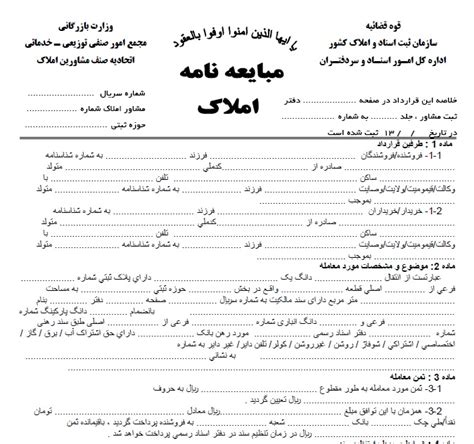 یا ایها الذین امنوا اوفوا بالعقود
قوه قضائیه
سازمان ثبت اسناد و املاک کشور
اداره کل امـور اسنـاد و سردفتـران
مبایعه نامه
املاک
وزارت بازرگانی
مجمع امور صنفی توزیعی ــ خدماتی
اتحادیه صنف مشاورین املاک
خلاصه این قرارداد در صفحه ..................... دفتر
ثبت مشاور ، جلد .......... به شماره ...................
در تاریخ / / ۱۳ ثبت شده است
شماره سریال ....................
مشاور املاک شماره ....................
حوزه ثبتی ....................
ماده 1 : طرفین قرارداد
1-1- فروشنده/فروشندگان .................... فرزند .................... به شماره شناسنامه
.................... صادره از .................... کدملی .................... متولد
.................... ساکن .................... تلفن .................... با
وکالت/قیومیت/ولایت/وصایت .................... فرزند .................... به شماره شناسنامه .................... متولد
.................... بموجب ....................
1-2- خریدار/خریداران .................... فرزند .................... به شماره شناسنامه
.................... صادره از .................... کدملی .................... متولد
.................... ساکن .................... تلفن .................... با
وکالت/قیومیت/ولایت/وصایت .................... فرزند .................... به شماره شناسنامه .................... متولد
.................... بموجب ....................
ماده 2: موضوع و مشخصات مورد معامله
عبارتست از انتقال .................... دانگ یک .................... دارای پلاک ثبتی شماره ....................
فرعی از .................... اصلی قطعه .................... واقع در بخش .................... حوزه ثبتی .................... به مساحت
.................... متر مربع دارای سند مالکیت به شماره سریال .................... صفحه .................... دفتر .................... بنام
.................... بانضمام .................... دانگ پارکینگ شماره
.................... فرعی و .................... دانگ انباری شماره .................... فرعی از .................... اصلی طبق سند رهنی
شماره .................... دفتر اسناد رسمی .................... مورد رهن بانک .................... دارای حق اشتراک آب / برق / گاز /
اختصاصی / اشتراکی / شوفاژ / روشن / غیرروشن / کولر/ تلفن دایر/ غیر دایر به شماره
.................... به نشانی ....................
ماده 3 : ثمن معامله
3-1- ثمن مورد معامله به طور مقطوع .................... ریال به حروف
.................... ریال تعیین گردید .
3-2- همزمان با این توافق مبلغ .................... ریال معادل .................... تومان
نقداً/طی چک .................... بانک .................... شعبه .................... به فروشنده پرداخت گردید ، باقیمانده ثمن
.................... ریال در زمان تنظیم سند در دفتر اسناد رسمی پرداخت خواهد شد .